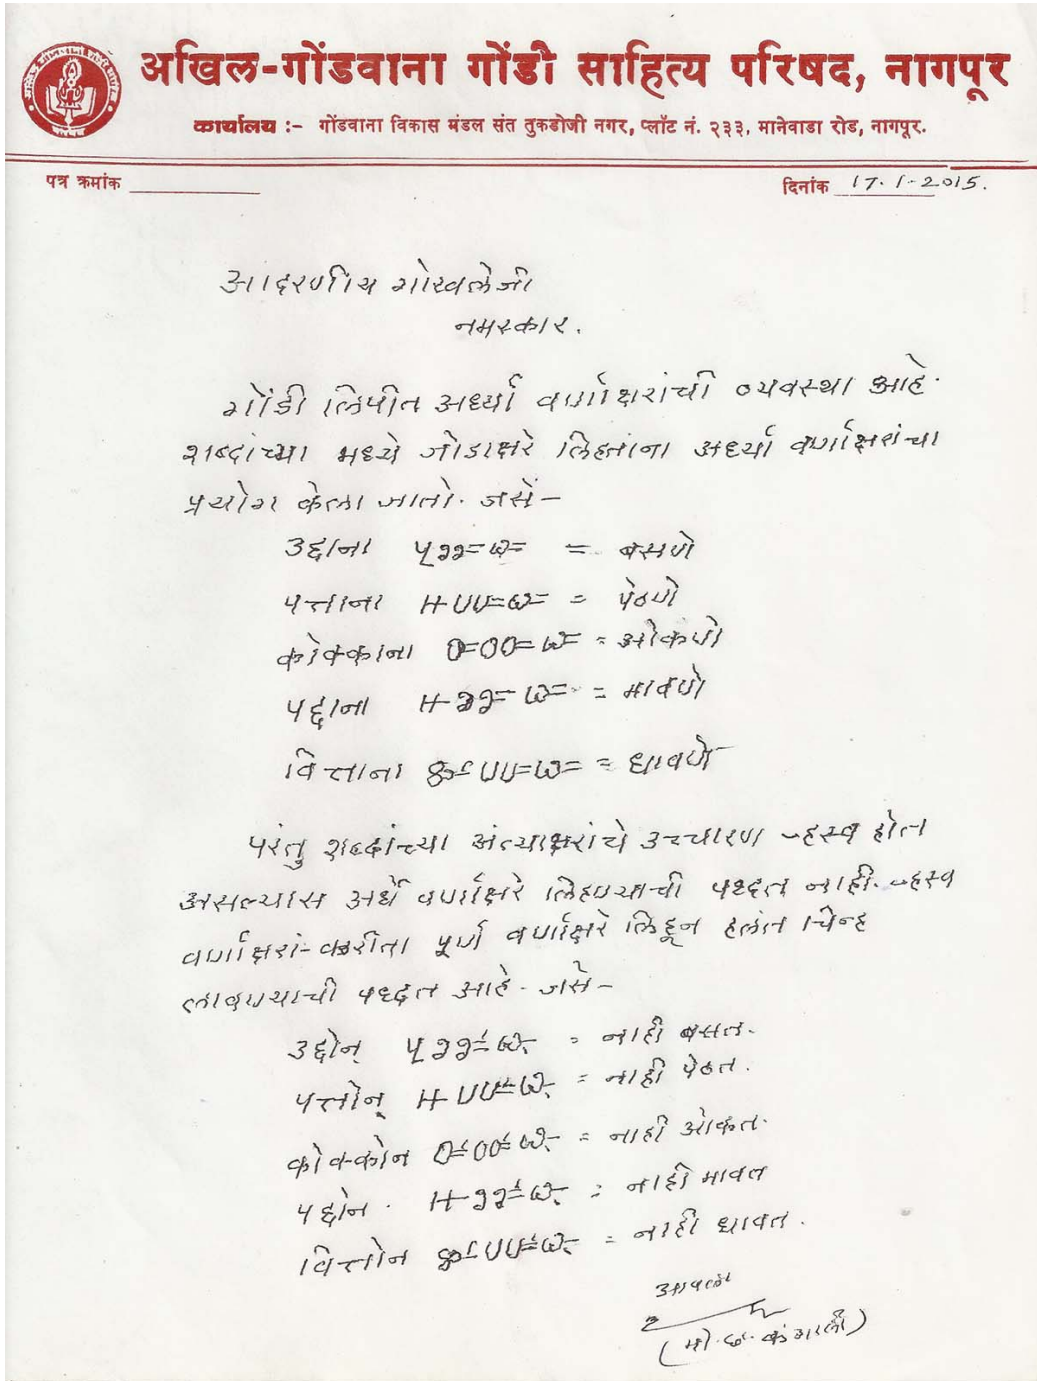 अखिल-गोंडवाना गोंडी साहित्य परिषद, नागपूर
कार्यालय :- गोंडवाना विकास मंडल संत तुकडोजी नगर, प्लॉट नं. २३३, मानेवाडा रोड, नागपूर.
पत्र क्रमांक
दिनांक 17.1-2015.
आदरणीय गोखलेजी
नमस्कार.
गोंडी लिपीत अर्ध्या वर्णाक्षरांची व्यवस्था आहे.
शब्दांच्या मध्ये जोडाक्षरे लिहतांना अर्ध्या वर्णाक्षरांचा
प्रयोग केला जातो. जसे-
उद्दाना = बसणे
पत्ताना = पेठणे
कोक्काना = ओकणे
पद्दाना = मावणे
वित्ताना = धावणे
परंतु शब्दांच्या अंत्याक्षरांचे उच्चारण ऱ्हस्व होत
असल्यास अर्धे वर्णाक्षरे लिहण्याची पध्दत नाही. ऱ्हस्व
वर्णाक्षरां-करीता पूर्ण वर्णाक्षरे लिहून हलंत चिन्ह
लावण्याची पध्दत आहे. जसे-
उद्दोन् = नाही बसत.
पत्तोन् = नाही पेठत.
कोक्कोन = नाही ओकत.
पद्दोन. = नाही मावत
वित्तोन = नाही धावत.
आपला
(मो. छ. कंगाली)